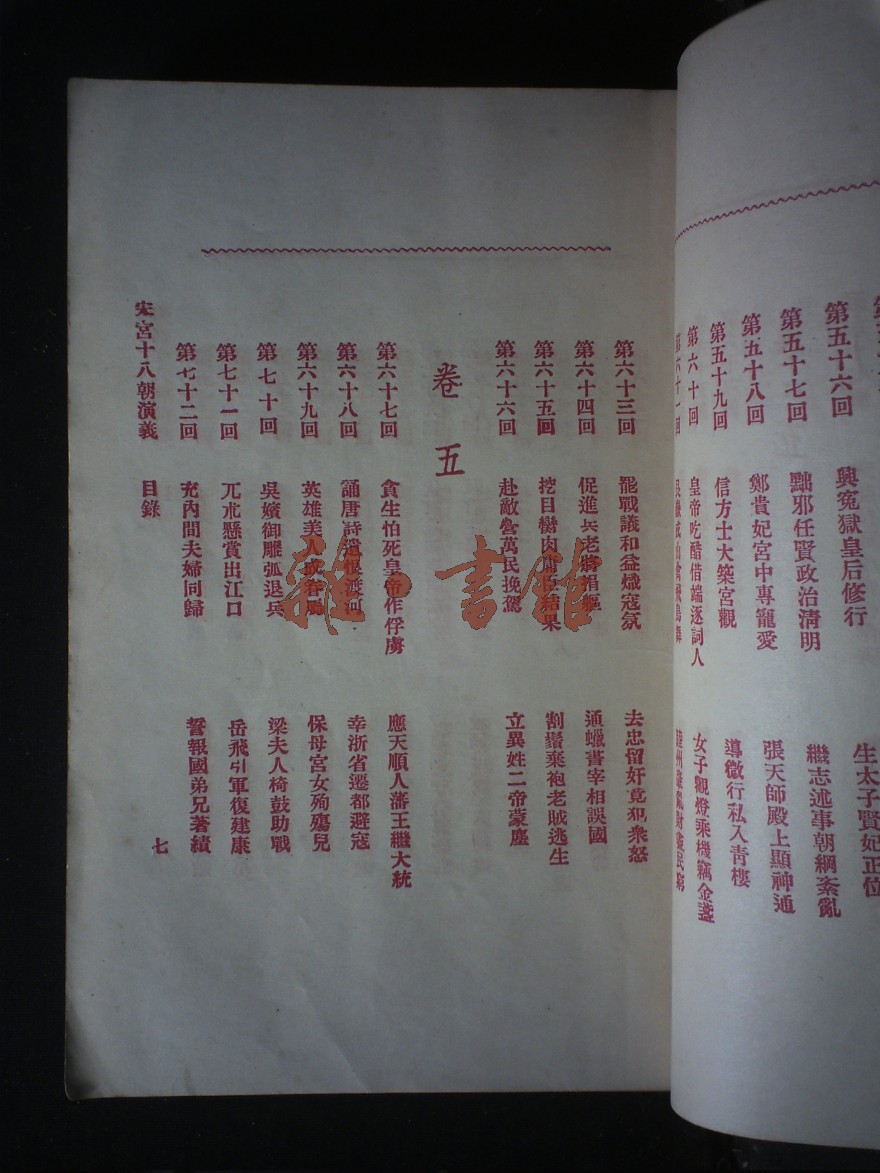 第五十六回 興冤獄皇后修行 生太子賢妃正位
第五十七回 黜邪任賢政治清明 繼志述事朝綱紊亂
第五十八回 鄭貴妃宮中專寵愛 張天師殿上顯神通
第五十九回 信方士大築宮觀 導微行私入靑樓
第六十回 皇帝吃醋借端逐詞人 女子觀燈乘機竊金盞
第六十三回 罷戰議和益熾寇氛 去忠留奸竟犯衆怒
第六十四回 促進兵老將捐軀 通蠟書宰相誤國
第六十五回 挖目臠肉 結果 割鬚棄袍老賊逃生
第六十六回 赴敵營萬民挽駕 立異姓二帝蒙塵
卷五
第六十七回 貪生怕死皇帝作俘虜 應天順人藩王繼大統
第六十八回 誦唐詩遺恨渡河 幸浙省遷都避寇
第六十九回 英雄美人 保母宮女殉殤兒
第七十回 吳嬪御雕弧退兵 梁夫人桴鼓助戰
第七十一回 兀朮懸賞出江口 岳飛引軍復建康
第七十二回 充內間夫婦同歸 誓報國弟兄著績
宋宮十八朝演義 目錄 七
雜·書館